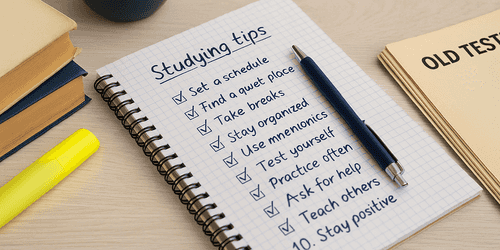 Studying tips
☑ Set a schedule
☑ Find a quiet place
☑ Take breaks
☑ Stay organized
☑ Use mnemonics
☑ Test yourself
☑ Practice often
☑ Ask for help
☑ Teach others
10. Stay positive
OLD TEST